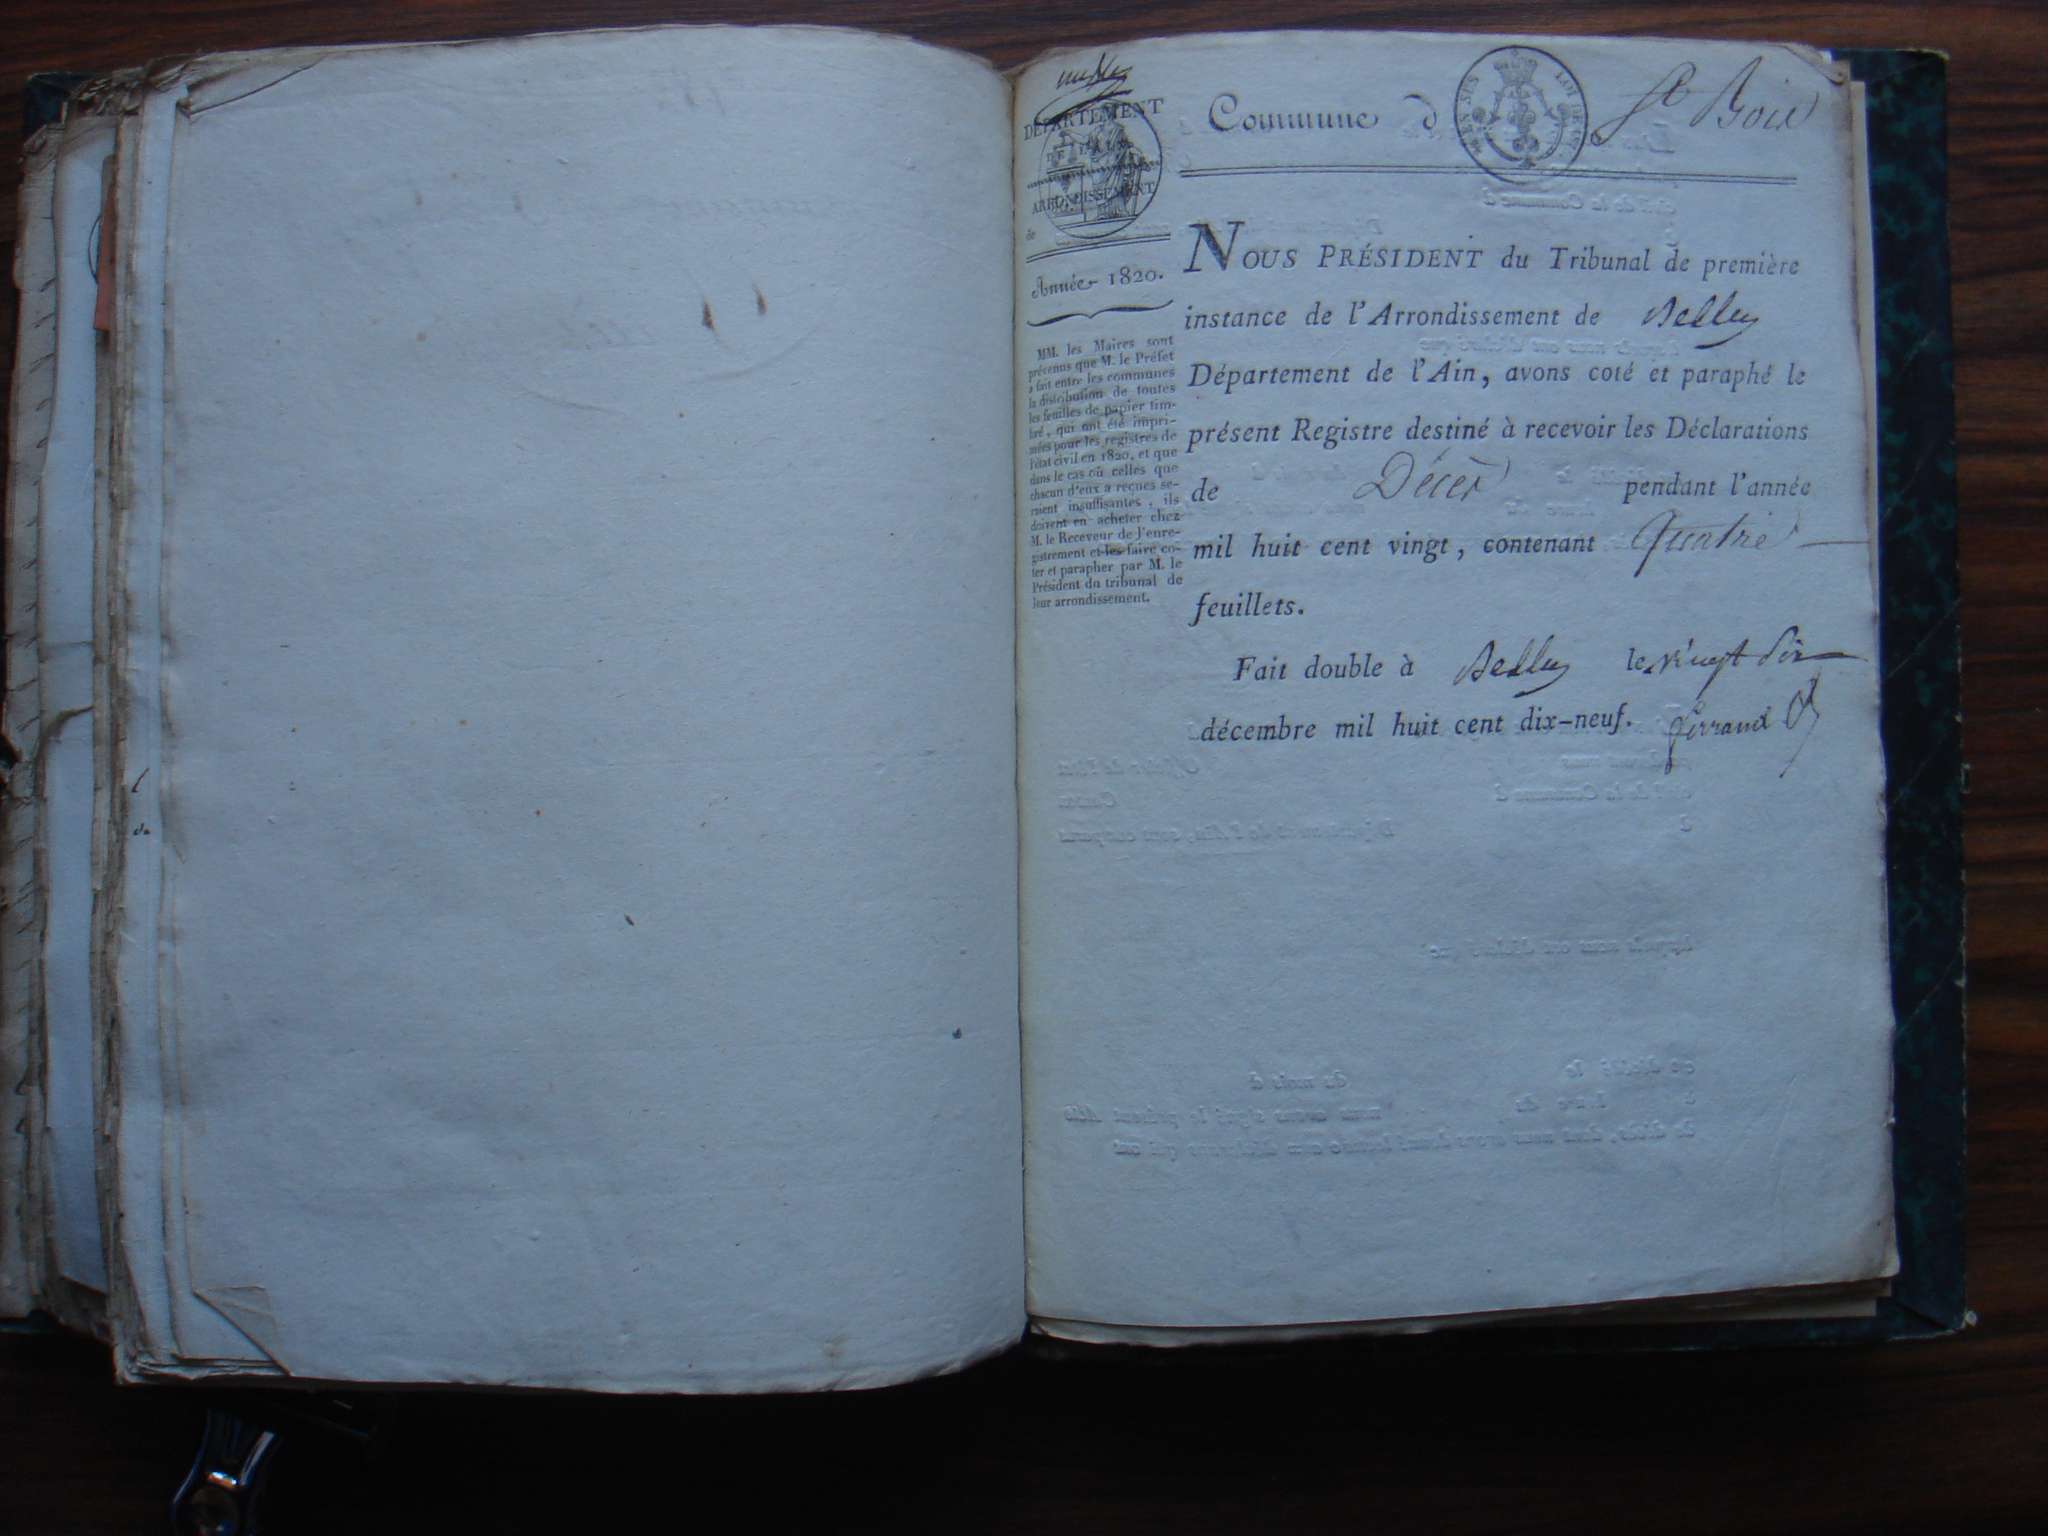 DÉPARTEMENT
DE L'AIN.
ARRONDISSEMENT
de
Année 1820.
MM. les Maires sont
prévenus que M. le Préfet
a fait entre les communes
la distribution de toutes
les feuilles de papier tim-
bré, qui ont été impri-
mées pour les registres de
l'état civil en 1820, et que
dans le cas où celles que
chacun d'eux a reçues se-
raient insuffisantes, ils
doivent en acheter chez
M. le Receveur de l'enre-
gistrement et les faire co-
ter et parapher par M. le
Président du tribunal de
leur arrondissement.
Commune d St Bois
NOUS PRÉSIDENT du Tribunal de première
instance de l'Arrondissement de Belley
Département de l'Ain, avons coté et paraphé le
présent Registre destiné à recevoir les Déclarations
de Décès pendant l'année
mil huit cent vingt, contenant Quatre
feuillets.
Fait double à Belley le vingt
décembre mil huit cent dix-neuf. Ferrand